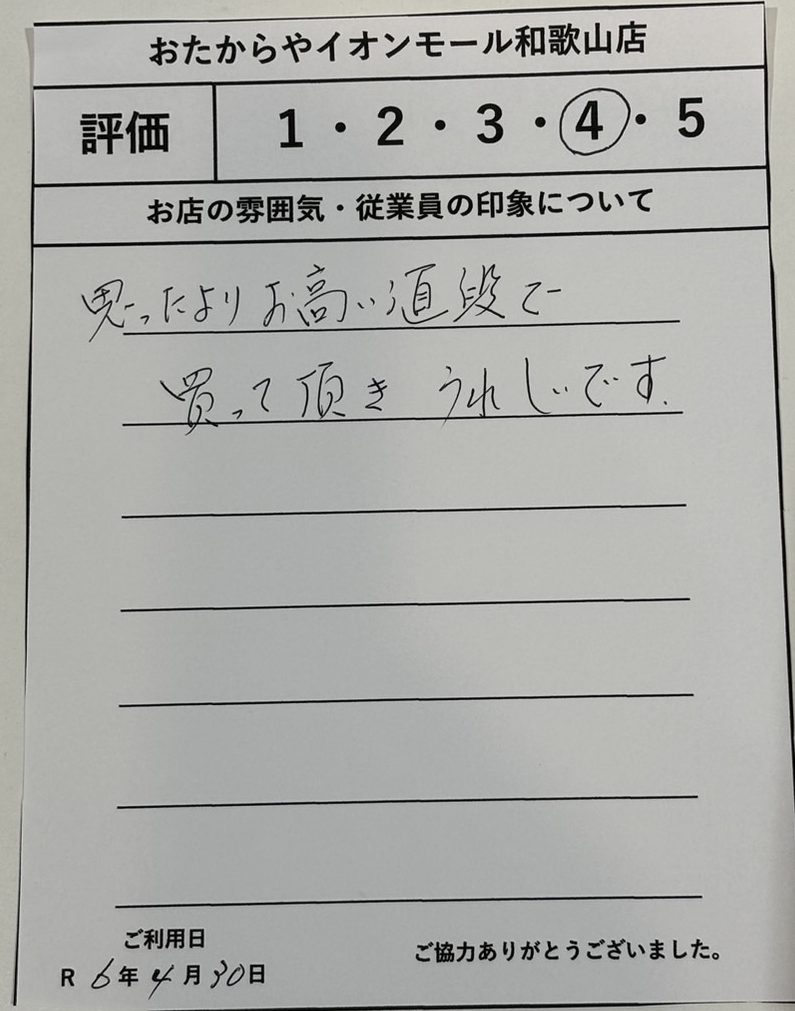 おたからやイオンモール和歌山店
評価 1・2・3・4・5
お店の雰囲気・従業員の印象について
思ったよりお高い値段で
買って頂き うれしいです.
ご利用日
R 6年4月30日
ご協力ありがとうございました。